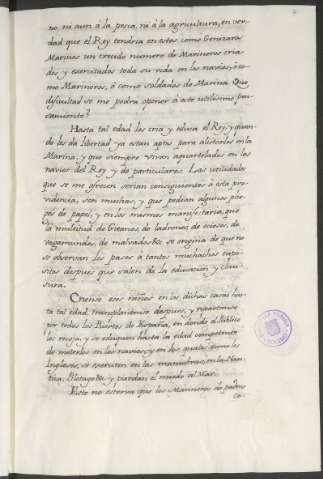 no, ni aun à la pesca, ni à la agricultura, en ver-
dad que el Rey tendria en estos como Genizaros
Marinos un crecido numero de Marineros cria-
dos y exercitados toda su vida en los navios, ò co-
mo Marineros, ò como soldados de Marina. Que
dificultad se me podrà oponer à este utilissimo pen-
samiento?
Hasta tal edad los cria y educa el Rey, y quan-
do les da libertad ya estan aptos para alistarlos en la
Marina, y que siempre vivan aquartelados en los
navios del Rey y de particulares. Las utilidades
que se me ofrecen serian consiguientes à esta pro-
videncia, son muchas, y que pedian algunos plie-
gos de papel, y en los mesmos manifestaria, que
la multitud de Gitanos, de ladrones, de ociosos, de
vagamundos, de malvados &c se origina de que no
se observan los pasos à tantos muchachos expo-
sitos despues que salen de la educacion y clau-
sura.
Criense esos niños en las dichas casas has-
ta tal edad, transplantense despues, y repartanse
por todos los Puertos de España, en donde al
los moja, y se eduquen hasta la edad competente
de meterlos en los navios, y en los quales como los
Ingleses, se exerciten en las maniobras, en la Nau-
tica, Pilotage &c y pierdan el miedo al Mar.
Esto no estorva que los Marineros de
ca-